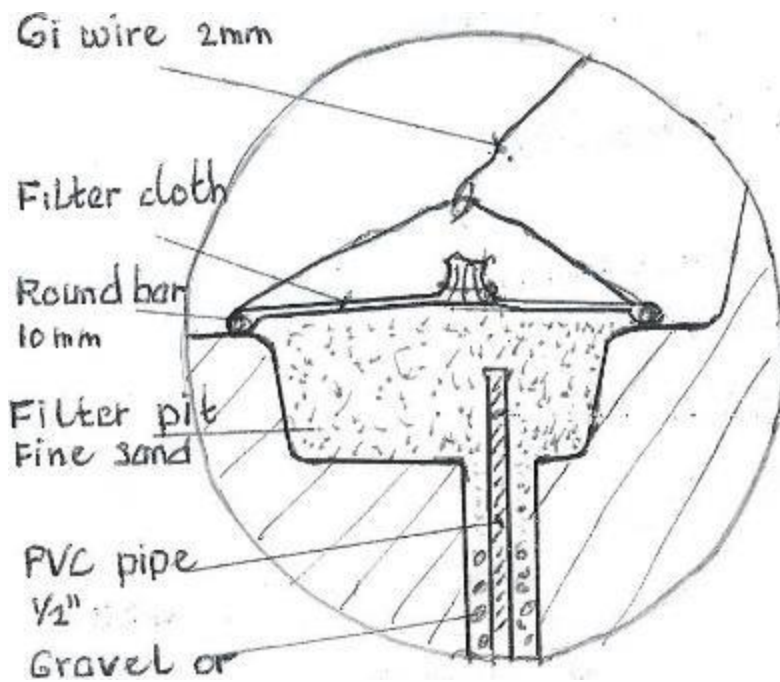 Gi wire 2mm
Filter cloth
Round bar
10 mm
Filter pit
Fine sand
PVC pipe
1/2"
Gravel or